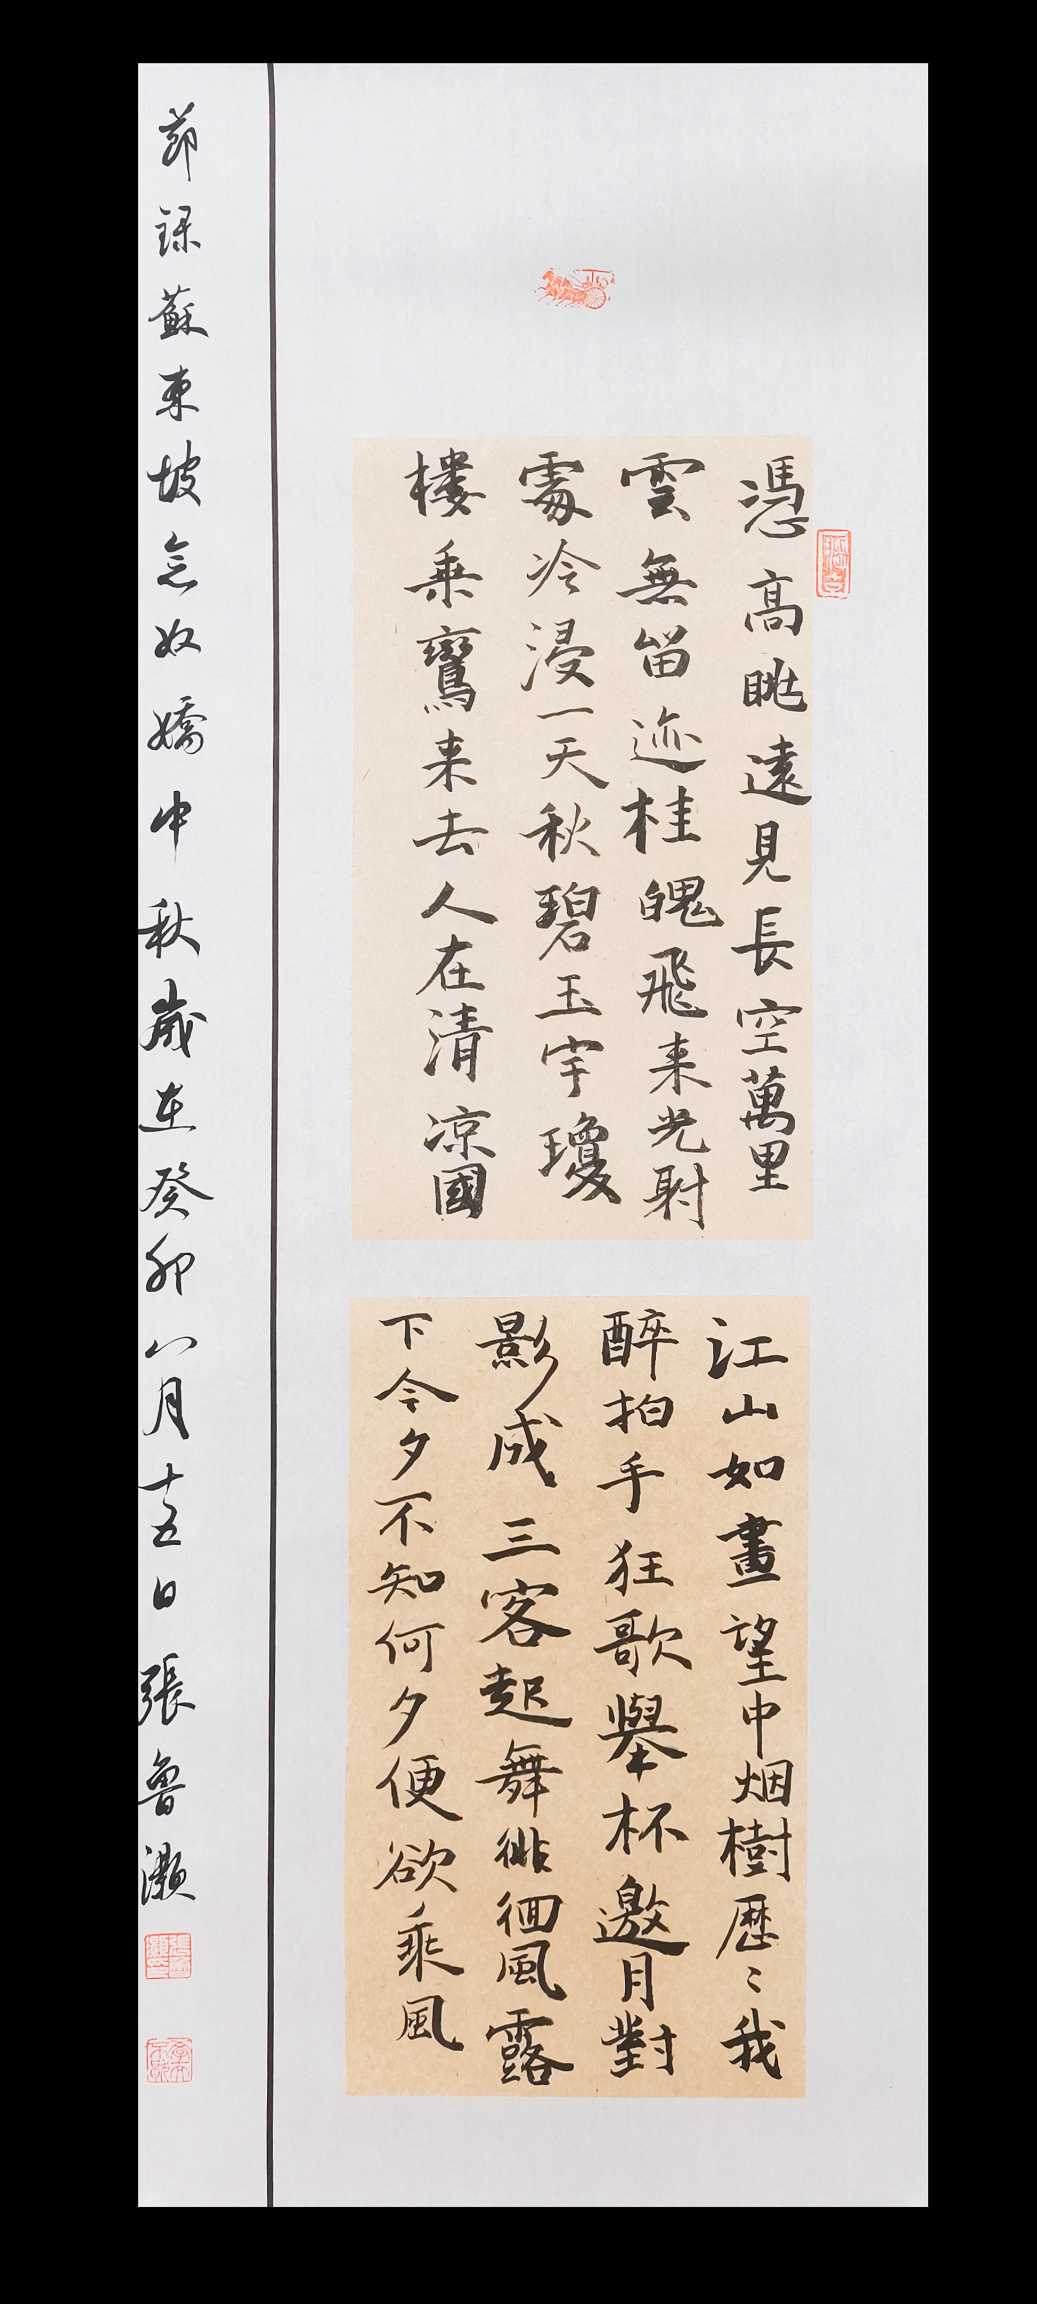 憑高眺遠見長空萬里
雲無留迹桂魄飛来光射
處冷浸一天秋碧玉宇瓊
樓乘鸞来去人在清凉國
江山如畫望中烟樹歷〻我
醉拍手狂歌舉杯邀月對
影成三客起舞徘徊風露
下今夕不知何夕便欲乘風
節録蘇東坡念奴嬌中秋歲在癸卯八月十五日張魯灝